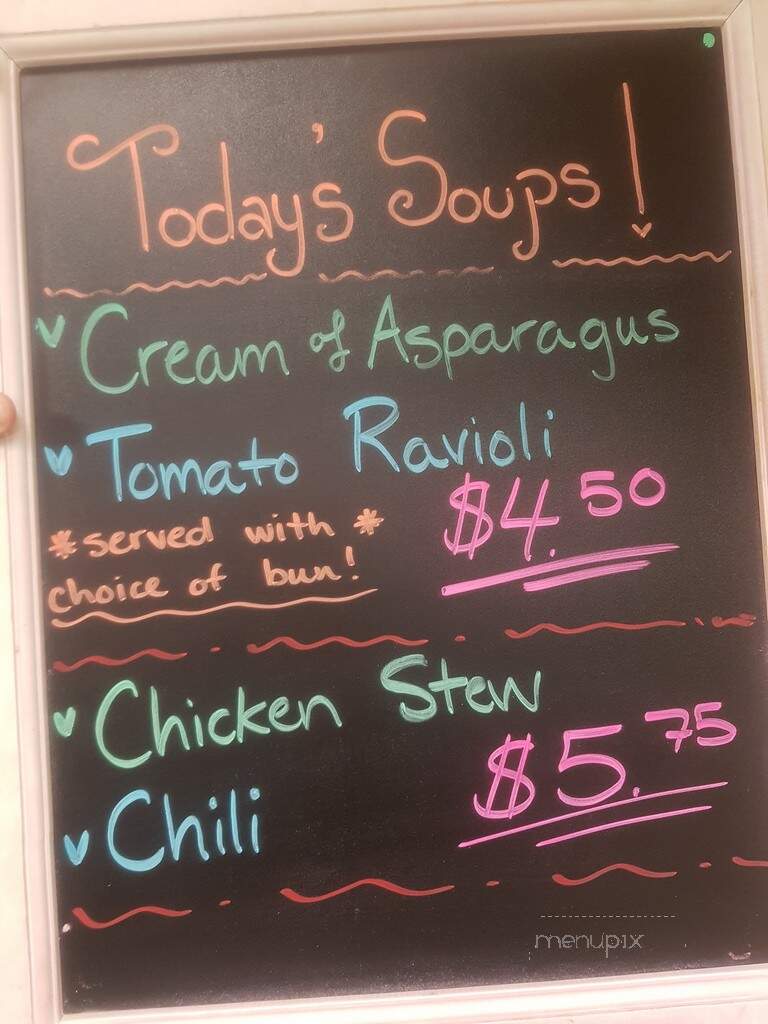 Today's Soups!
Cream of Asparagus
Tomato Ravioli
$4.50
*served with*
choice of bun!
Chicken Stew
$5.75
Chili
menupix